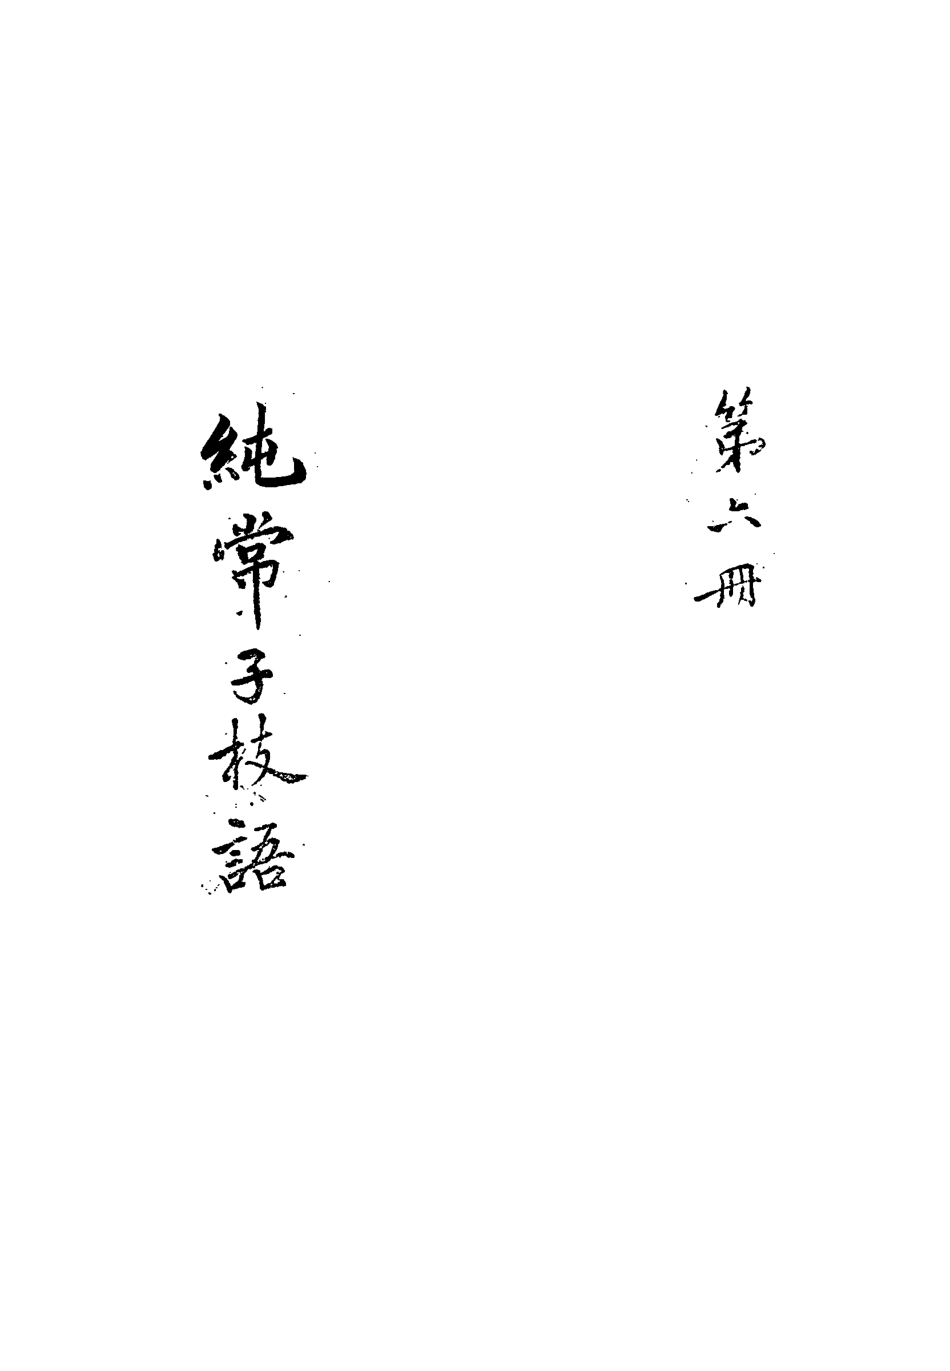 第六冊
純常子枝語